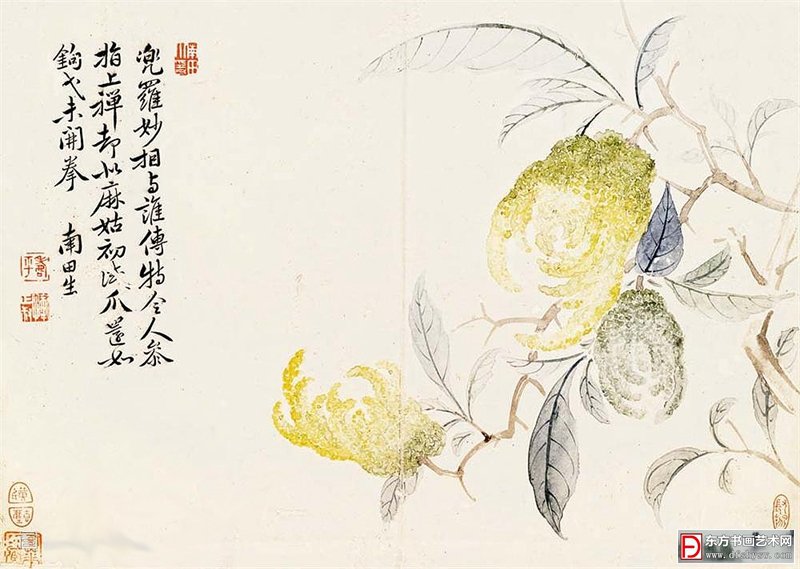 兜羅妙相与誰傳特令人參
指上禪却似麻姑初試爪還如
鉤弋未開拳 南田生
东方书画艺术网
www.dfshysw.com